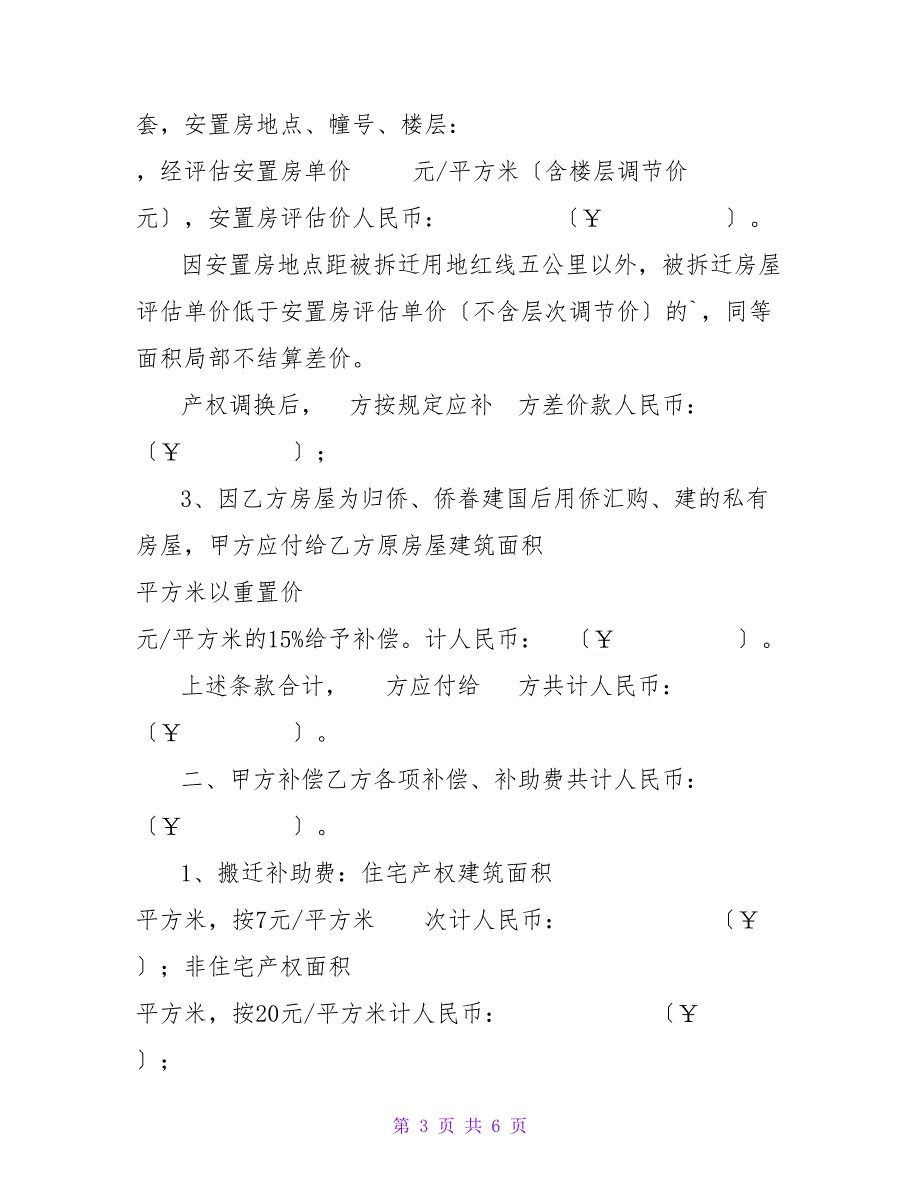 套，安置房地点、幢号、楼层：
，经评估安置房单价　　元/平方米〔含楼层调节价
元〕，安置房评估价人民币：　　　　　〔￥　　　　　〕。
因安置房地点距被拆迁用地红线五公里以外，被拆迁房屋
评估单价低于安置房评估单价〔不含层次调节价〕的`，同等
面积局部不结算差价。
产权调换后，　方按规定应补　方差价款人民币：
〔￥　　　　　〕；
3、因乙方房屋为归侨、侨眷建国后用侨汇购、建的私有
房屋，甲方应付给乙方原房屋建筑面积
平方米以重置价
元/平方米的15%给予补偿。计人民币：　〔￥　　　　　〕。
上述条款合计，　　方应付给　方共计人民币：
〔￥　　　　　〕。
二、甲方补偿乙方各项补偿、补助费共计人民币：
〔￥　　　　　〕。
1、搬迁补助费：住宅产权建筑面积
平方米，按7元/平方米　　次计人民币：　　　　　　〔￥
〕；非住宅产权面积
平方米，按20元/平方米计人民币：　　　　　　〔￥
〕；
第 3 页 共 6 页